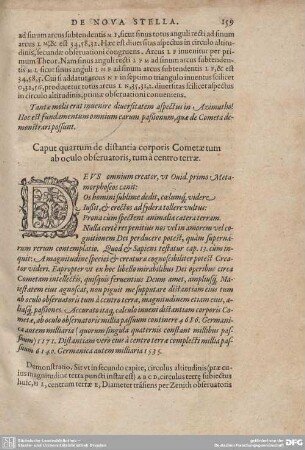 DE NOVA STELLA. 159
ad sinum arcus subtendentis N P, sicut sinus totus anguli recti ad sinum
arcus I N & est 34,58,52. Hæc est diuersitas aspectus in circulo alti-
tudinis, secundùm obseruationes congruens. Arcus I P inuenitur per
primum Theor. Nam sinus anguli recti I N ad sinum arcus subtendentis
N I sicut sinus anguli I N ad sinum arcus subtendentis I P, & est
N in septimo triangulo inuentus scilicet
producetur totus arcus diuersitas scilicet aspectus in
circulo altitudinis, primæ obseruationi conueniens.
Tantæ molis erat inuenire diuersitatem aspectus in Azimutho!
Hoc est fundamentum omnium earum passionum, quæ de Cometa de-
monstrari possunt.
Caput quartum de distantia corporis Cometæ tum
ab oculo obseruatoris, tum à centro terræ.
DEVS omnium creator, vt Ouid. primo Meta-
morphoseos canit:
Os homini sublime dedit, cælumq́; videre
Iussit, & erectos ad sydera tollere vultus:
Prona cùm spectent animalia cætera terram.
Nulla certè res penitius nos vel in amorem vel co-
gnitionem Dei perducere potest, quàm superna-
rum rerum contemplatio. Quod & Sapiens testatur cap. 13. cum in-
quit: A magnitudine speciei & creaturæ cognoscibiliter poterit Crea-
tor videri. Eapropter vt ex hoc libello mirabilibus Dei operibus circa
Cometam intellectis, quisquis feruentius Deum amet, ampliuśq; Ma-
iestatem eius agnoscat, non piguit me supputare distantiam eius tum
ab oculo obseruatoris tum à centro terræ, magnitudinem etiam eius, a-
liasq́; passiones. Accurato itaq; calculo inueni distantiam corporis Co-
metæ, ab oculo obseruatoris millia passuum continere 4686. Germani-
ca autem milliaria (quorum singula quaternis constant millibus pas-
suum) 1171. Distantiam vero eius à centro terræ complecti millia pas-
suum 6140. Germanica autem milliaria 1535.
Demonstratio. Sit vt in secundo capite, circulus altitudinis (præ en-
circulus terræ subiectus
centrum terræ E, Diameter trãsiens per Zenith obseruatoris